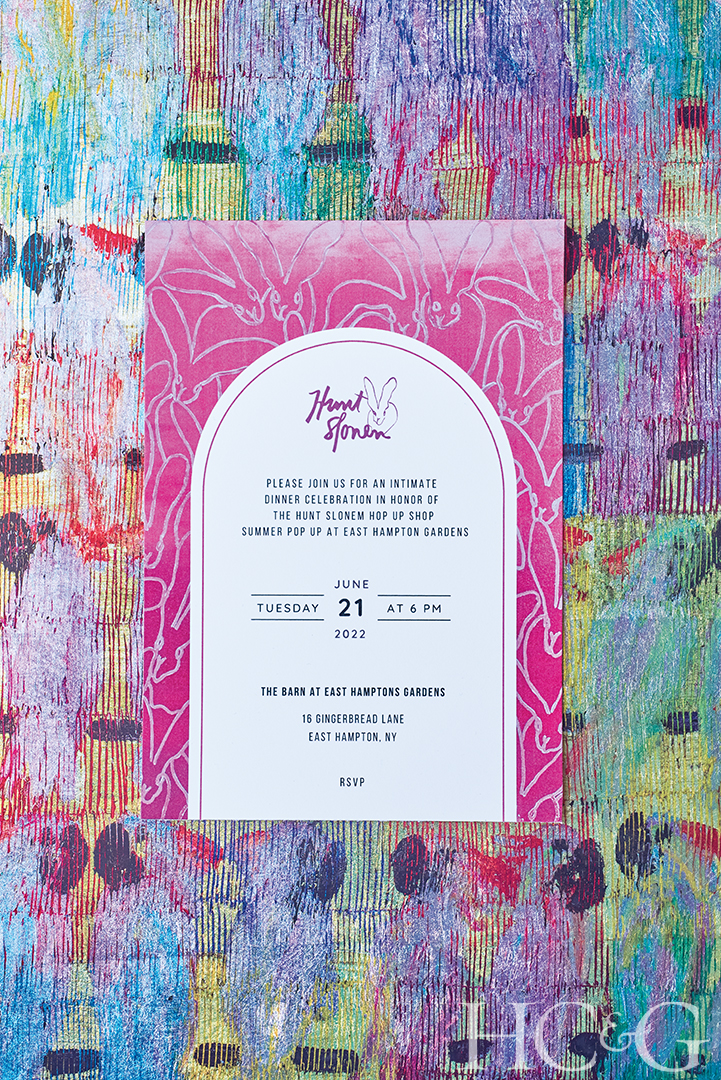 Hunt
Slonem
PLEASE JOIN US FOR AN INTIMATE
DINNER CELEBRATION IN HONOR OF
THE HUNT SLONEM HOP UP SHOP
SUMMER POP UP AT EAST HAMPTON GARDENS
JUNE
TUESDAY 21 AT 6 PM
2022
THE BARN AT EAST HAMPTONS GARDENS
16 GINGERBREAD LANE
EAST HAMPTON, NY
RSVP
HC&G